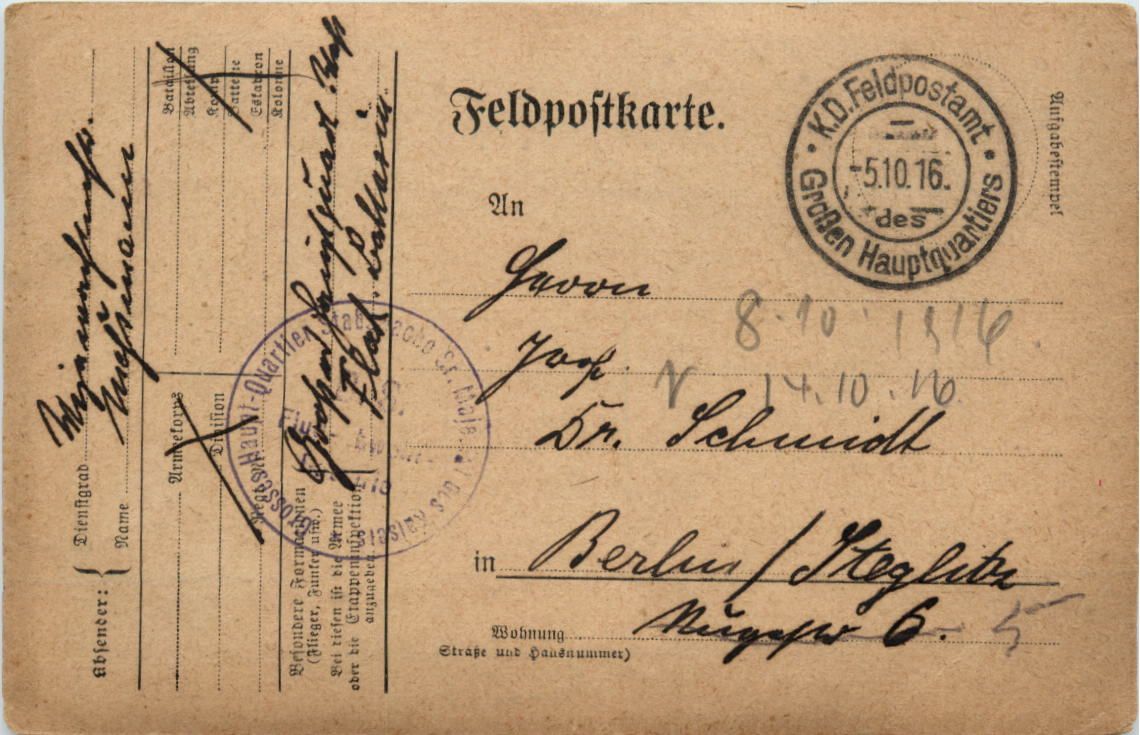 Feldpostkarte.
K.D. Feldpostamt
-5.10.16.
des
Großen Hauptquartiers
Aufgabestempel
An
Herrn
8.10.1916
Prof.
14.10.16.
Dr. Schmidt
in Berlin/Steglitz
Wohnung
6.
5
Straße und Hausnummer)
Absender:
Dienstgrad
Name
Armeekorps
Division
Regt.
Bataillon
Abteilung
Komp.
Batterie
Eskadron
Kolonne
Besondere Formationen
(Flieger, Funker usw.)
Bei diesen ist die Armee
oder die Etappeninspektion
anzugeben
Flak
Grosses Haupt-Quartier Stabswache Sr. Majestät des Kaisers